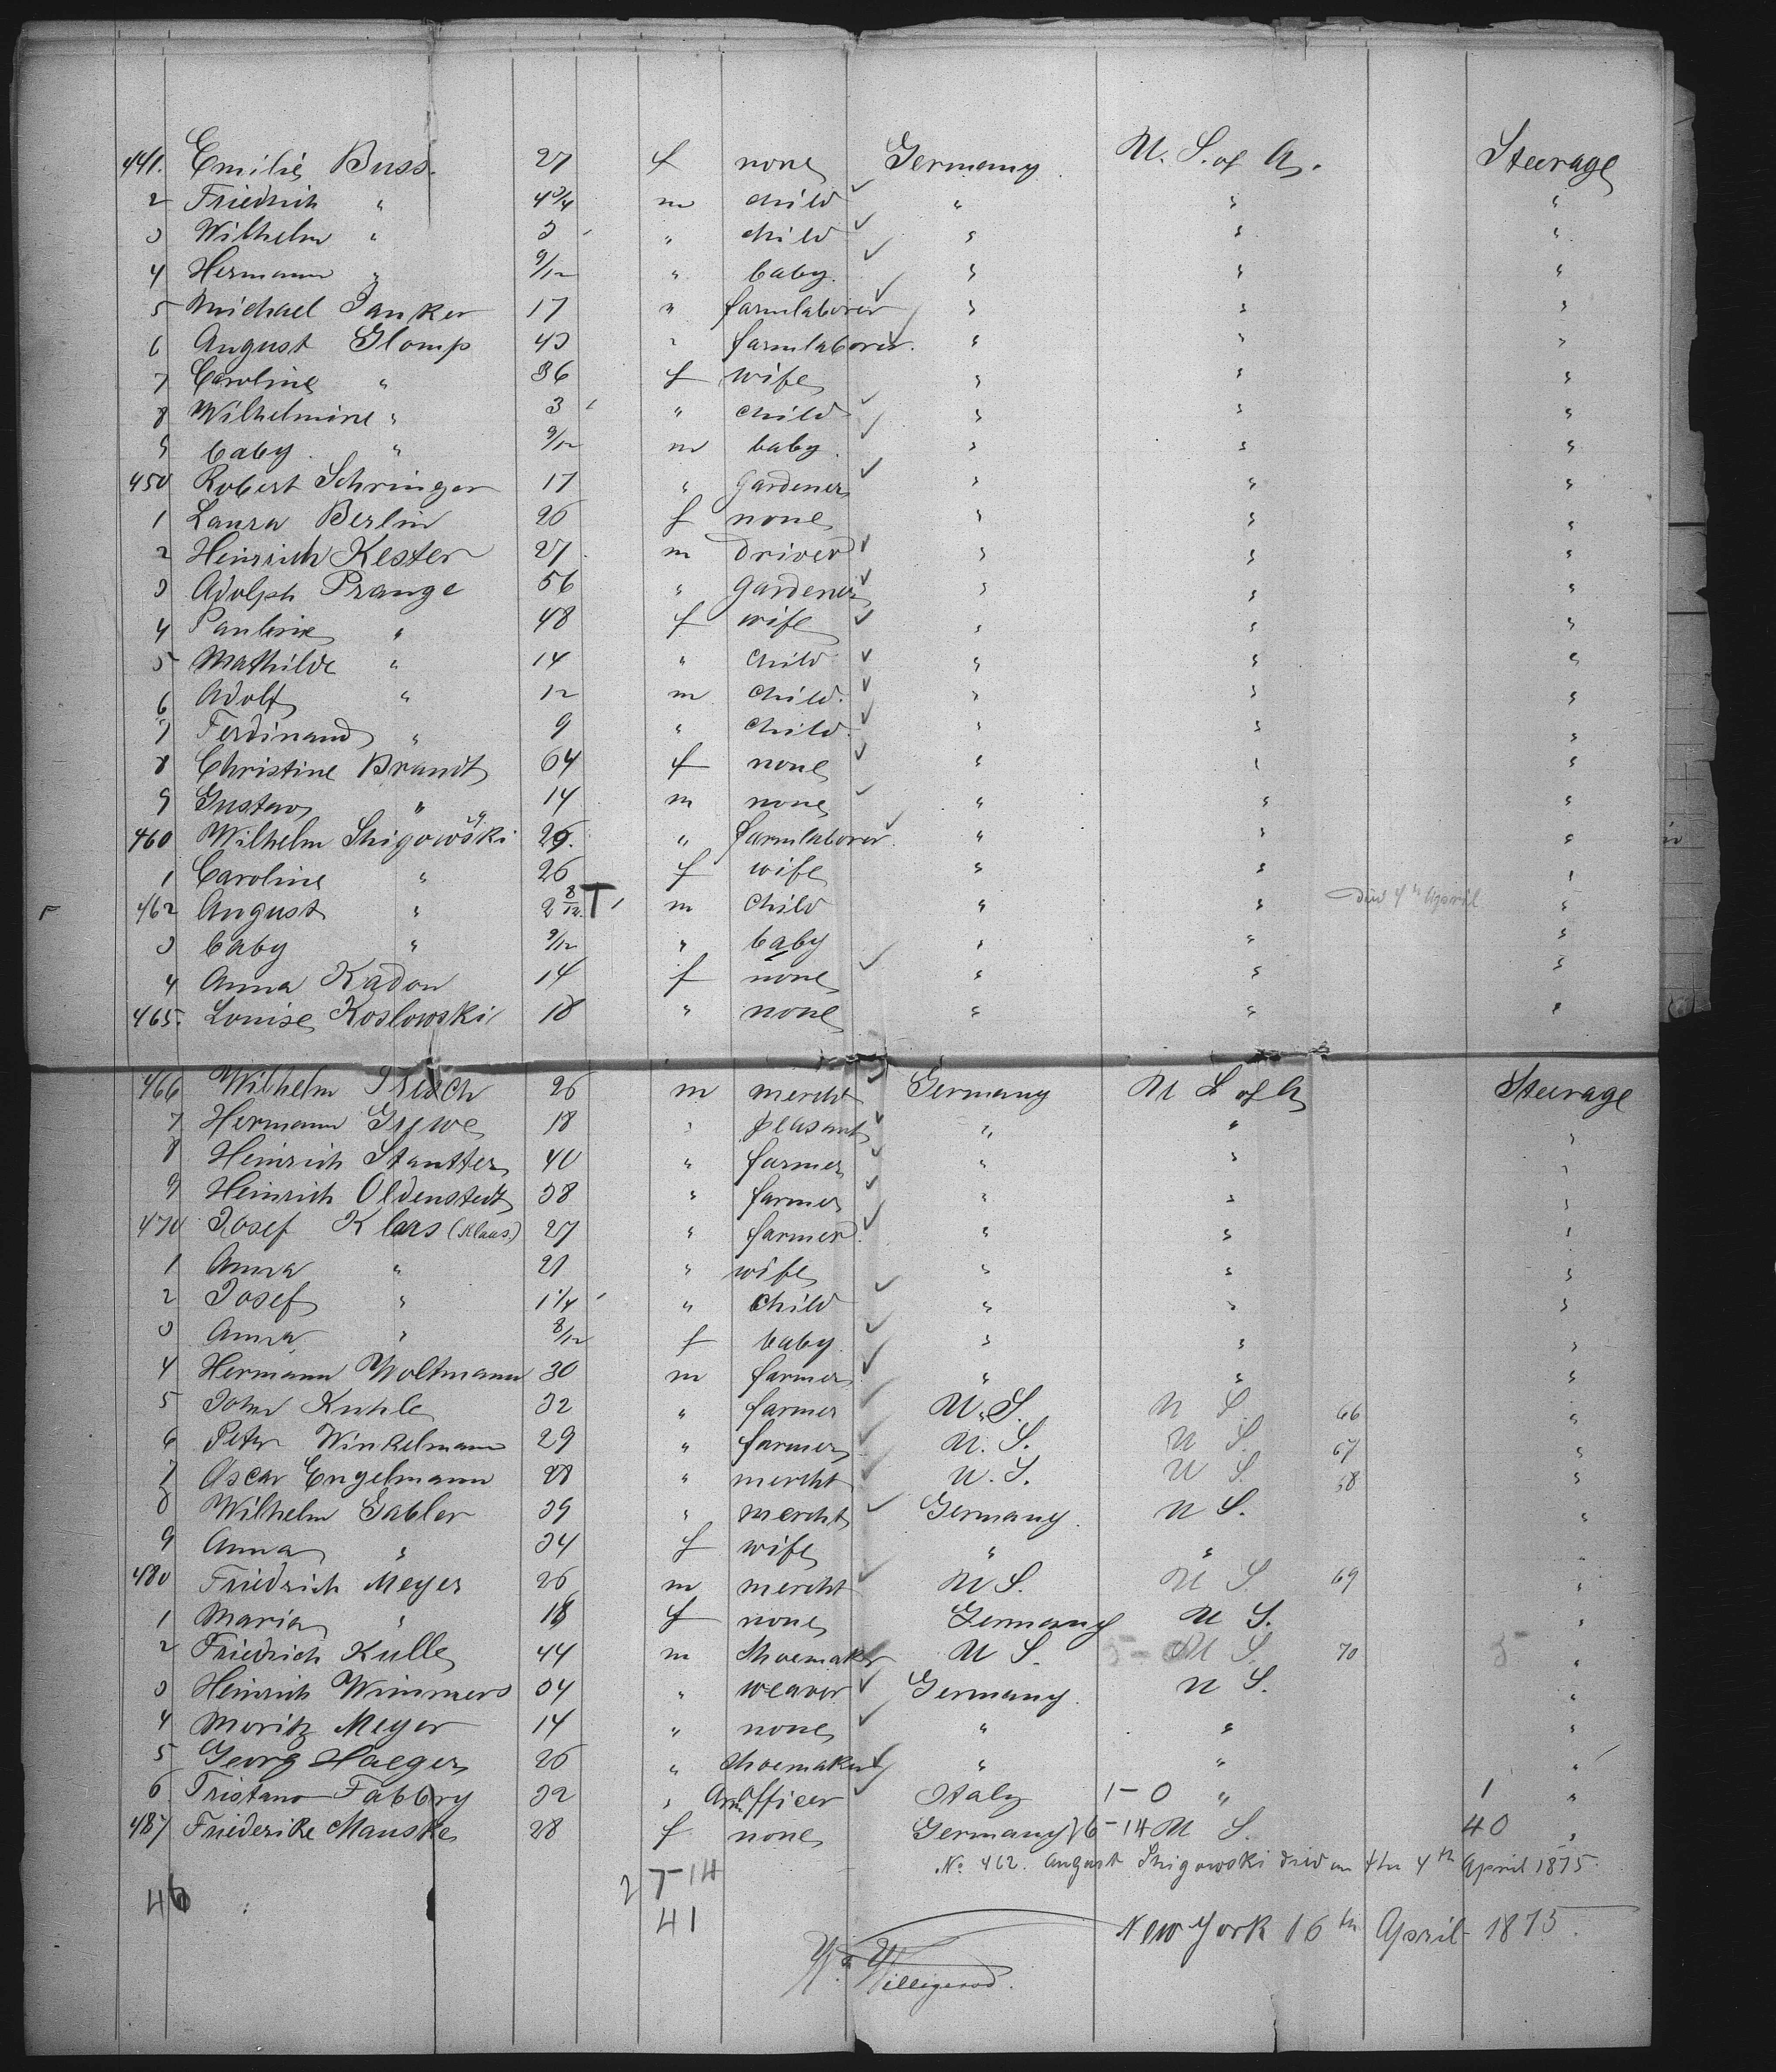 441. Emilie Buss. 27 f none Germany U. S. of A. Steerage
2 Friedrich " 4 3/4 m child " " "
3 Wilhelm " 3 " child " " "
4 Hermann " 9/12 " baby. " " "
5 Michael Janker 17 " farmlaborer " " "
6 August Glomp 43 " farmlaborer. " " "
7 Caroline " 36 f wife " " "
8 Wilhelmine " 3 " child " " "
9 baby. " 9/12 m baby. " " "
450 Robert Schringer 17 " gardener " " "
1 Laura Berlin 26 f none " " "
2 Heinrich Kester 27. m driver " " "
3 Adolph Prange 56 " gardener " " "
4 Pauline " 48 f wife " " "
5 Mathilde " 14 " child " " "
6 Adolf " 12 m child. " " "
7 Ferdinand " 9 " child. " " "
8 Christine Brandt 64 f none " " "
9 Gustav " 14 m none " " "
460 Wilhelm Shigowski 29. " farmlaborer. " " "
1 Caroline " 26 f wife " " "
462 August " 2 8/12. T m child " " died 4th April "
3 baby " 9/12 " baby " " "
4 Anna Kadon 14 f none " " "
465. Louise Koslowski 18 " none " " "
466 Wilhelm 26 m mercht Germany U S of A Steerage
7 Hermann Grewe 18 " peasant " " "
8 Heinrich Stantter 40 " farmer " " "
9 Heinrich Oldenstedt 38 " farmer " " "
470 Josef Klaas (Klaas) 27 " farmer. " " "
1 Anna " 21 " wife " " "
2 Josef " 1 1/4 " child " " "
3 Anna " 8/12 f baby. " " "
4 Hermann Woltmann 30 m farmer " " "
5 John Kuhle 32 " farmer U. S. U S 66 "
6 Peter Winkelmann 29 " farmer U. S. U S. 67 "
7 Oscar Engelmann 28 " mercht U. S. U S. 68 "
8 Wilhelm Gabler 39 " mercht Germany. U S. "
9 Anna " 34 f wife " " "
480 Friedrich Meyer 26 m mercht U S. U S 69 "
1 Maria " 18 f none Germany U S. "
2 Friedrich Kulle 44 m Shoemaker U S. U S. 70 "
3 Heinrich Wimmers 34 " weaver Germany. U S. "
4 Moritz Meyer 14 " none " " "
5 Georg Haeger 26 " Shoemaker " " "
6. Tristano Fabbry 32 " Officer Italy 1-0 " 1 "
487 Friederike Manske 28 f none Germany 26-14 U S. 40 "
No. 462. August Shigowski died on the 4th April 1875.
27-14
46
41
New York 16th April 1875.
Willigerod.